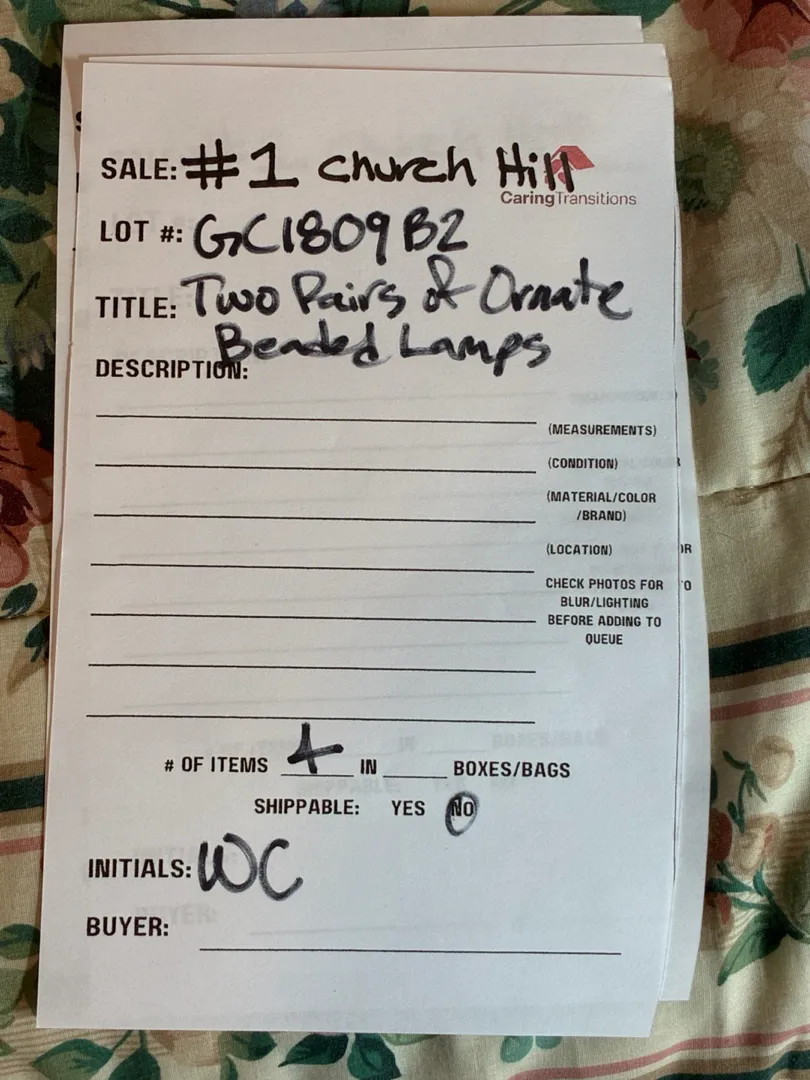 SALE: #1 Church Hill
CaringTransitions
LOT #: GC1809B2
TITLE: Two Pairs of Ornate
Beaded Lamps
DESCRIPTION:
(MEASUREMENTS)
(CONDITION)
(MATERIAL/COLOR
/BRAND)
(LOCATION)
CHECK PHOTOS FOR
BLUR/LIGHTING
BEFORE ADDING TO
QUEUE
# OF ITEMS 4 IN BOXES/BAGS
SHIPPABLE: YES NO
INITIALS: WC
BUYER: